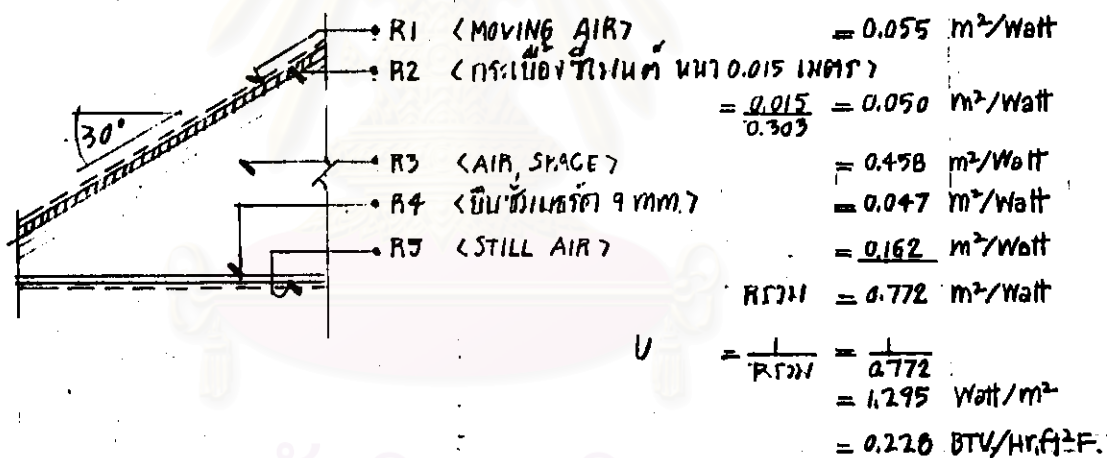 R1 <MOVING AIR> = 0.055 m²/Watt
R2 <กระเบื้องซีเมนต์ หนา 0.015 เมตร>
= 0.015/0.303 = 0.050 m²/Watt
30°
R3 <AIR SPACE> = 0.458 m²/Watt
R4 <ยิบซั่มบอร์ด 9 mm.> = 0.047 m²/Watt
R5 <STILL AIR> = 0.162 m²/Watt
Rรวม = 0.772 m²/Watt
U = 1/Rรวม = 1/0.772
= 1.295 Watt/m²
= 0.228 BTU/Hr.ft²F.